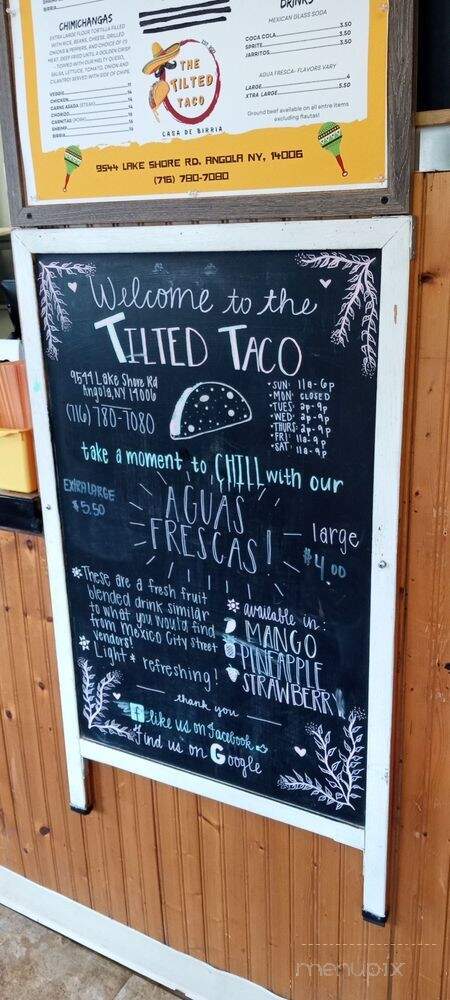 CHIMICHANGAS
EXTRA LARGE FLOUR TORTILLA FILLED
WITH RICE, BEANS, CHEESE, GRILLED
ONIONS & PEPPERS, AND CHOICE OF
MEAT, DEEP FRIED UNTIL A GOLDEN CRISP
TOPPED WITH OUR MELTY QUESO,
SALSA, LETTUCE, TOMATO, ONION AND
CILANTRO! SERVED WITH SIDE OF CHIPS.
VEGGIE
CHICKEN
CARNE ASADA (STEAK)
CHORIZO
CARNITAS (PORK)
SHRIMP
BIRRIA
THE
TILTED
TACO
CASA DE BIRRIA
DRINKS
MEXICAN GLASS SODA
COCA COLA 3.50
SPRITE 3.50
JARRITOS 3.50
AGUA FRESCA- FLAVORS VARY
LARGE 4
XTRA LARGE 5.50
Ground beef available on all entire items
excluding flautas!
9544 LAKE SHORE RD. ANGOLA NY, 14006
(716) 780-7080
Welcome to the
TILTED TACO
9544 Lake Shore Rd
Angola, NY 14006
(716) 780-7080
SUN: 11a-6p
MON: CLOSED
TUES: 2p-9p
WED: 2p-9p
THURS: 2p-9p
FRI: 11a-9p
SAT: 11a-9p
take a moment to CHILL with our
EXTRA LARGE
$5.50
AGUAS
FRESCAS!
large
$4.00
These are a fresh fruit
blended drink similar
to what you would find
from Mexico City street
vendors!
Light & refreshing!
available in:
MANGO
PINEAPPLE
STRAWBERRY
thank you
f like us on Facebook
find us on Google
menupix